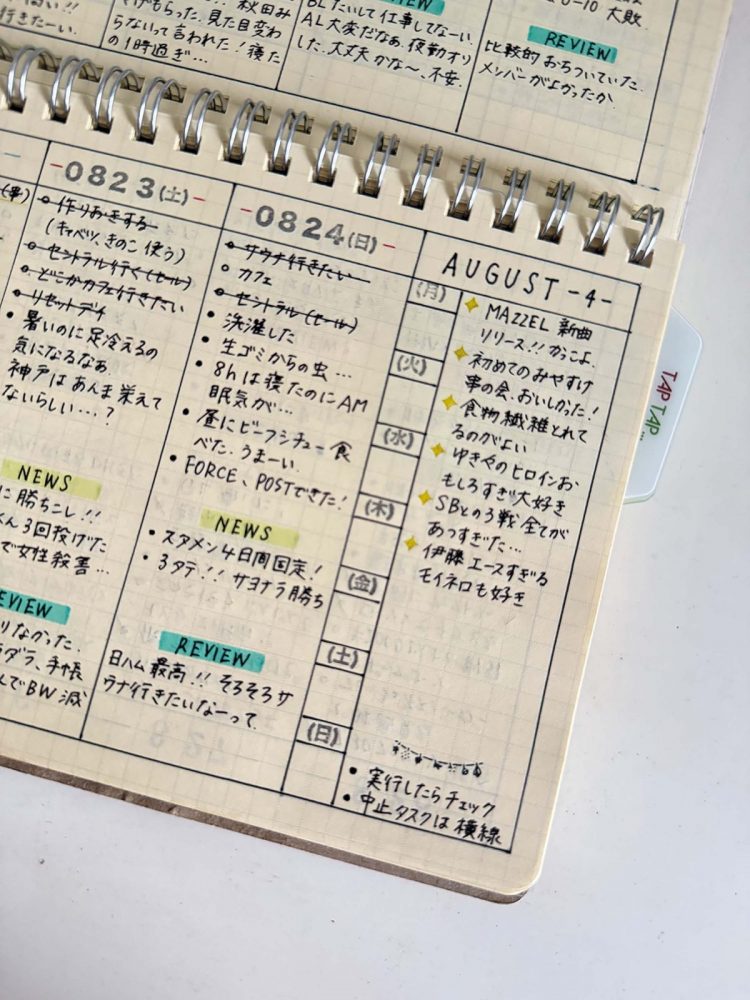 行きたーい.
秋田み
やげもらった。見た目変わ
らないって言われた！寝た
の1時過ぎ…
BLたいして仕事してなーい.
AL大変だなぁ. 夜勤オリ
した. 大丈夫かな〜、不安.
0-10 大敗.
REVIEW
比較的おちついていた.
メンバーがよかったか.
0823(土)
作りおきする
(キャベツ、きのこ使う)
セントラル行く(セール)
どこかカフェ行きたい
リセットデイ
• 暑いのに足冷えるの
気になるなぁ
神戸はあんま栄えて
ないらしい…？
NEWS
に勝ちこし!!
くん3回投げた
で女性殺害…
REVIEW
りなかった.
ダラ、手帳
んでBW減
0824(日)
サウナ行きたい
カフェ
セントラル(セール)
• 洗濯した
• 生ゴミからの虫…
• 8hは寝たのにAM
眠気が…
• 昼にビーフシチュー食
べた. うまーい.
• FORCE、POSTできた！
NEWS
• スタメン4日間固定！
• 3タテ!! サヨナラ勝ち
REVIEW
日ハム最高!! そろそろサ
ウナ行きたいなーって.
AUGUST -4-
(月)
(火)
(水)
(木)
(金)
(土)
(日)
MAZZEL 新曲
リリース!! かっこよ.
初めてのみやすけ
事の会. おいしかった！
食物繊維とれて
るのがよい
ゆきやのヒロインお
もしろすぎ大好き
SBとの3戦全てが
あつすぎた…
伊藤エースすぎる
モイネロも好き
• 実行したらチェック
• 中止タスクは横線
TAP TAP